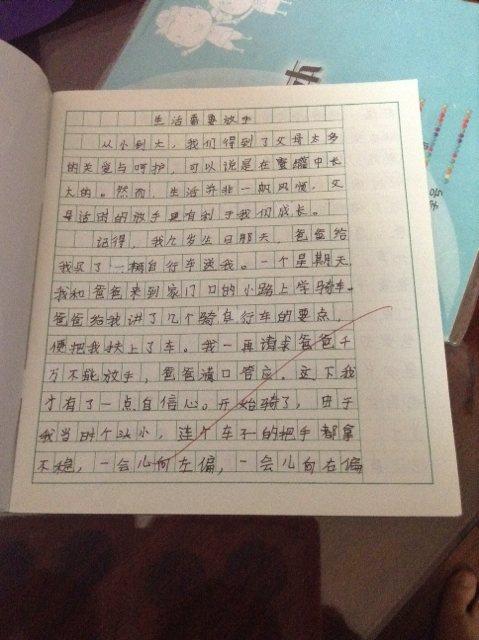 本
生活需要放手
从小到大，我们得到了父母太多
的关爱与呵护，可以说是在蜜罐中长
大的。然而，生活并非一帆风顺，父
母适时的放手更有利于我们成长。
记得，我九岁生日那天，爸爸给
我买了一辆自行车送我。一个星期天，
我和爸爸来到家门口的小路上学骑车。
爸爸给我讲了几个骑自行车的要点，
便把我扶上了车。我一再请求爸爸千
万不能放手，爸爸满口答应。这下我
才有了一点自信心。开始骑了，由于
我当时个头小，连个车子的把手都拿
不稳，一会儿向左偏，一会儿向右偏